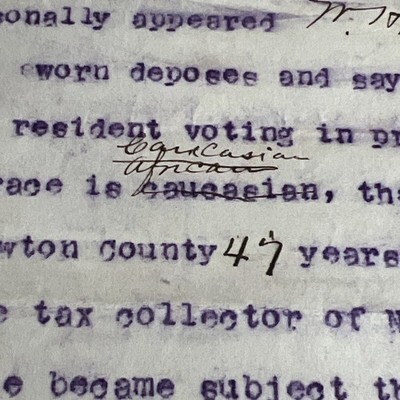 onally appeared
sworn deposes and say
resident voting in pr
Caucasian
African
race is caucasian, tha
wton county 47 years
e tax collector of N
e became subject th